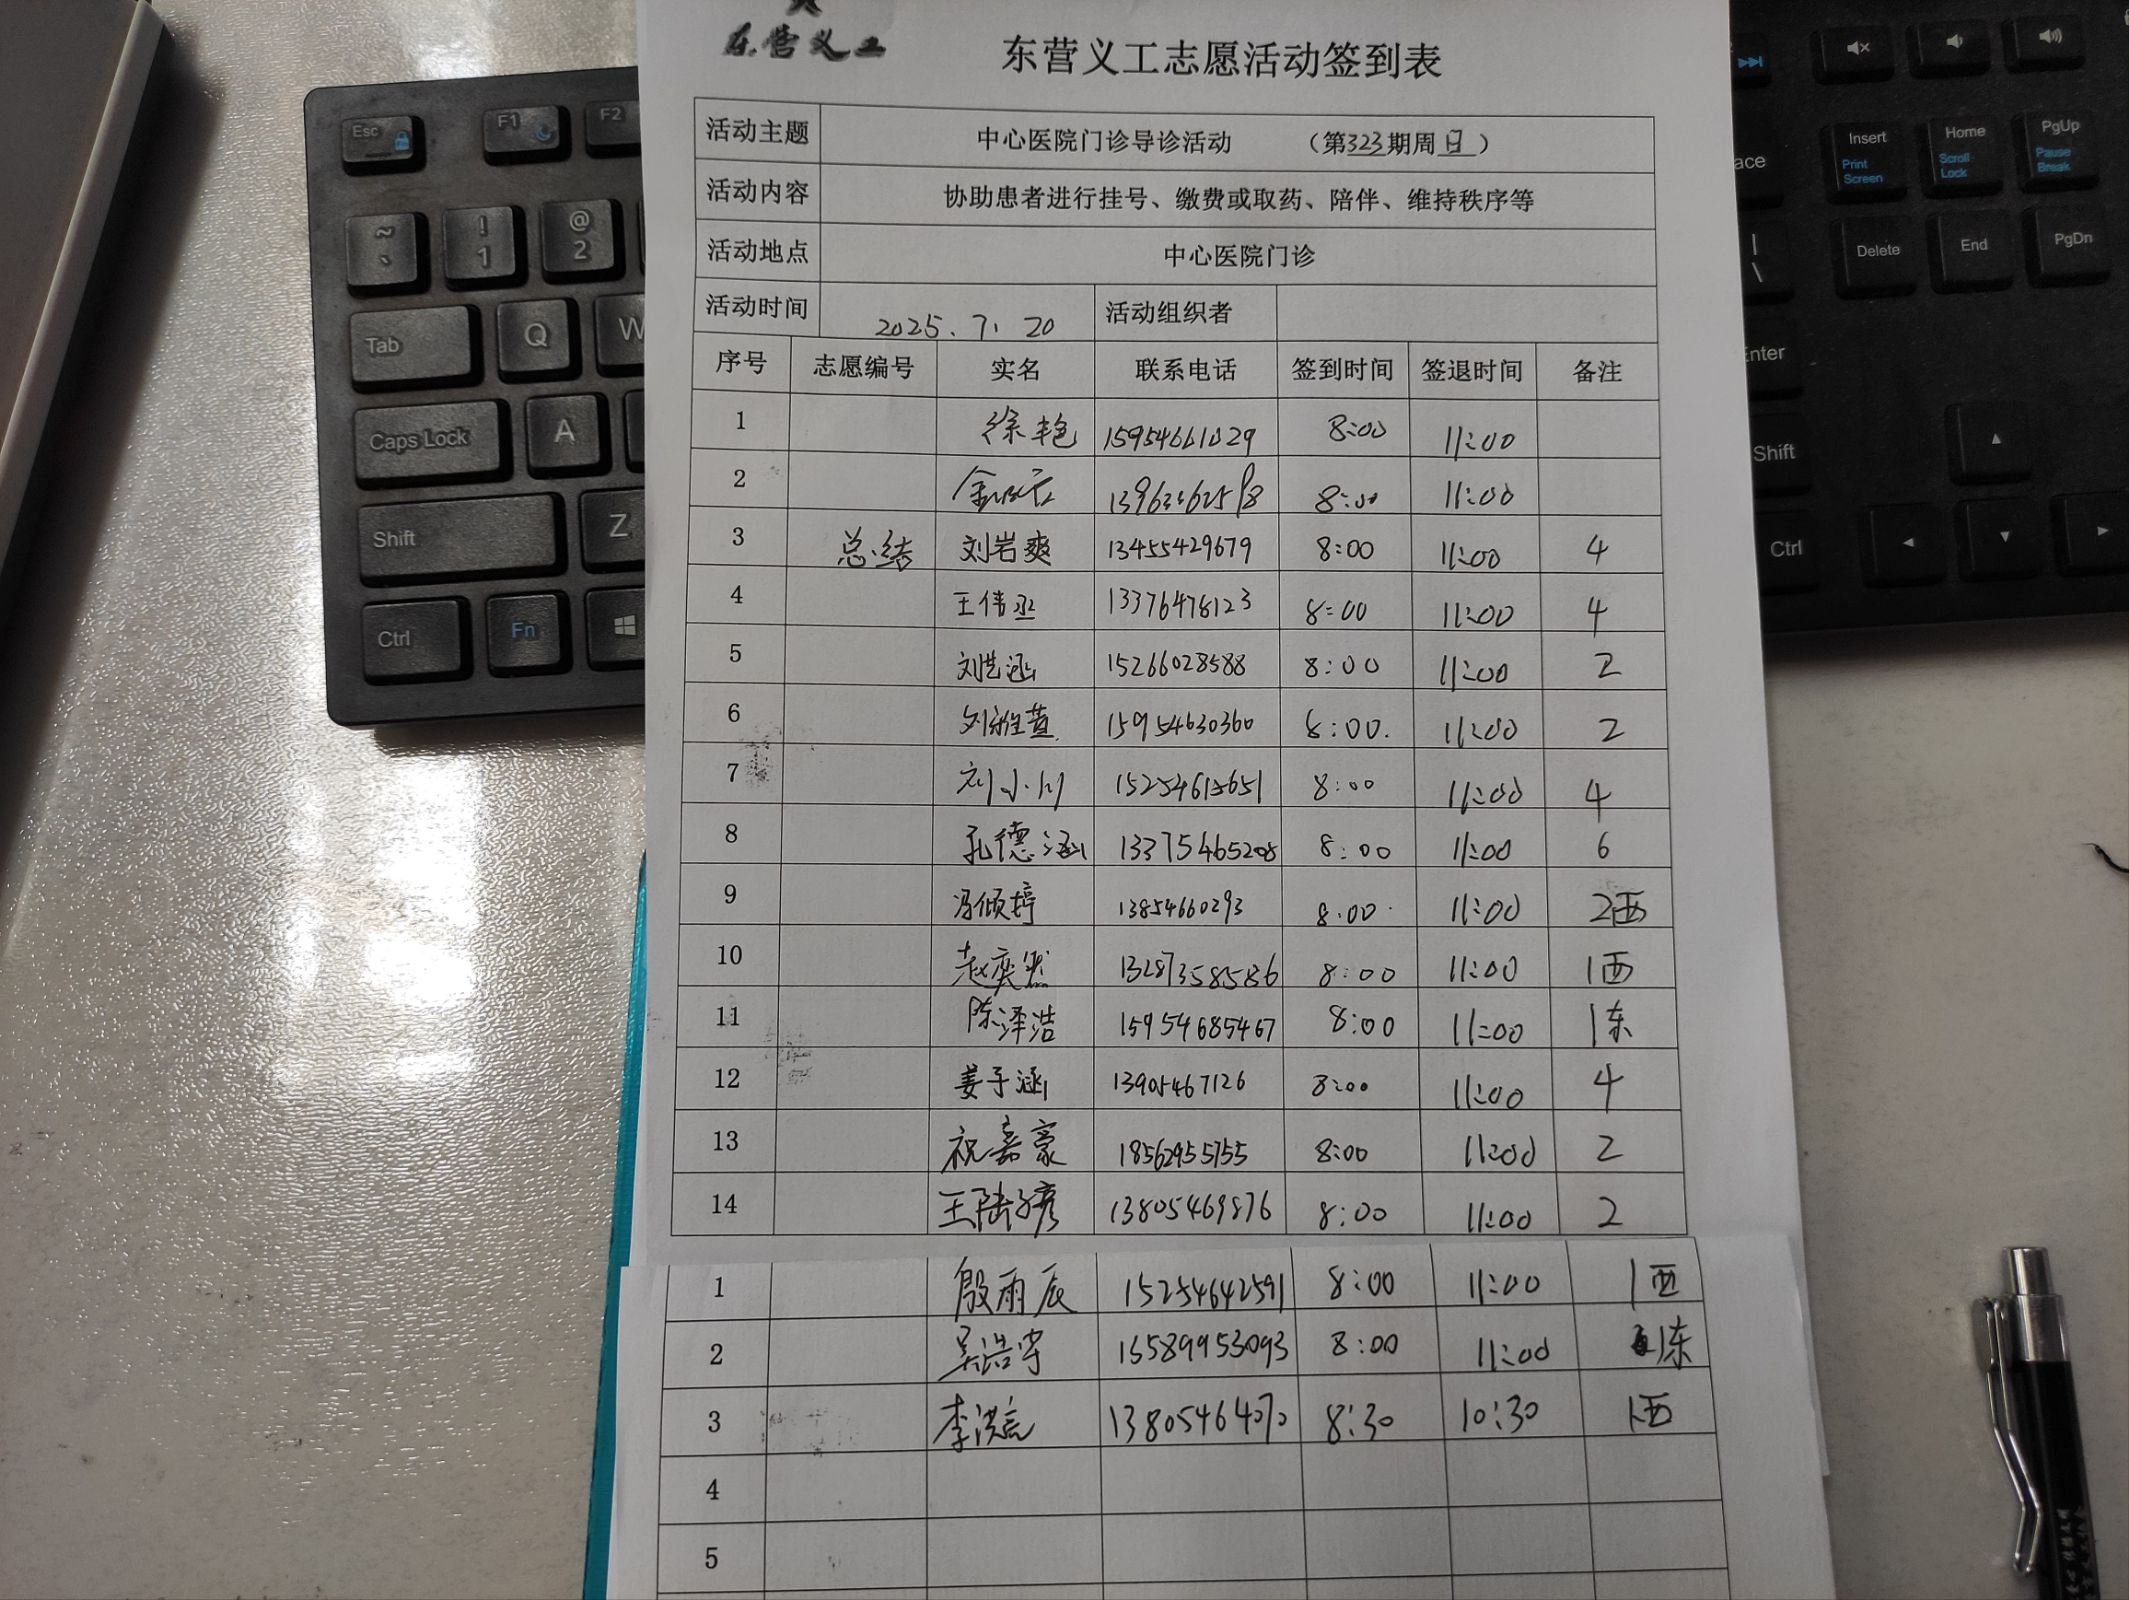 东营义工
东营义工志愿活动签到表
活动主题 中心医院门诊导诊活动 （第323期周日）
活动内容 协助患者进行挂号、缴费或取药、陪伴、维持秩序等
活动地点 中心医院门诊
活动时间 2025.7.20 活动组织者
序号 志愿编号 实名 联系电话 签到时间 签退时间 备注
1 徐艳 15954661029 8:00 11:00
2 8:00 11:00
3 总结 刘岩爽 13455429679 8:00 11:00 4
4 王倩丞 13376478123 8:00 11:00 4
5 刘艺涵 15266028588 8:00 11:00 2
6 刘雅萱 15954630360 8:00. 11:00 2
7 刘小川 8:00 11:00 4
8 孔德涵 13375465208 8:00 11:00 6
9 冯倾婷 13854660293 8:00 11:00 2西
10 赵奕然 13287358586 8:00 11:00 1西
11 陈泽浩 15954685467 8:00 11:00 1东
12 姜子涵 13905467126 8:00 11:00 4
13 祝嘉豪 18562955755 8:00 11:00 2
14 王陆彦 13805469876 8:00 11:00 2
1 殷雨辰 15254642591 8:00 11:00 1西
2 吴浩宇 15589953093 8:00 11:00 1东
3 李洪亮 8:30 10:30 1西
4
5
Esc F1 F2
~ ` ! 1 @ 2
Tab Q W
Caps Lock A
Shift Z
Ctrl Fn
Insert Print Screen Home Scroll Lock PgUp Pause Break
Delete End PgDn
| \
Enter
Shift
Ctrl